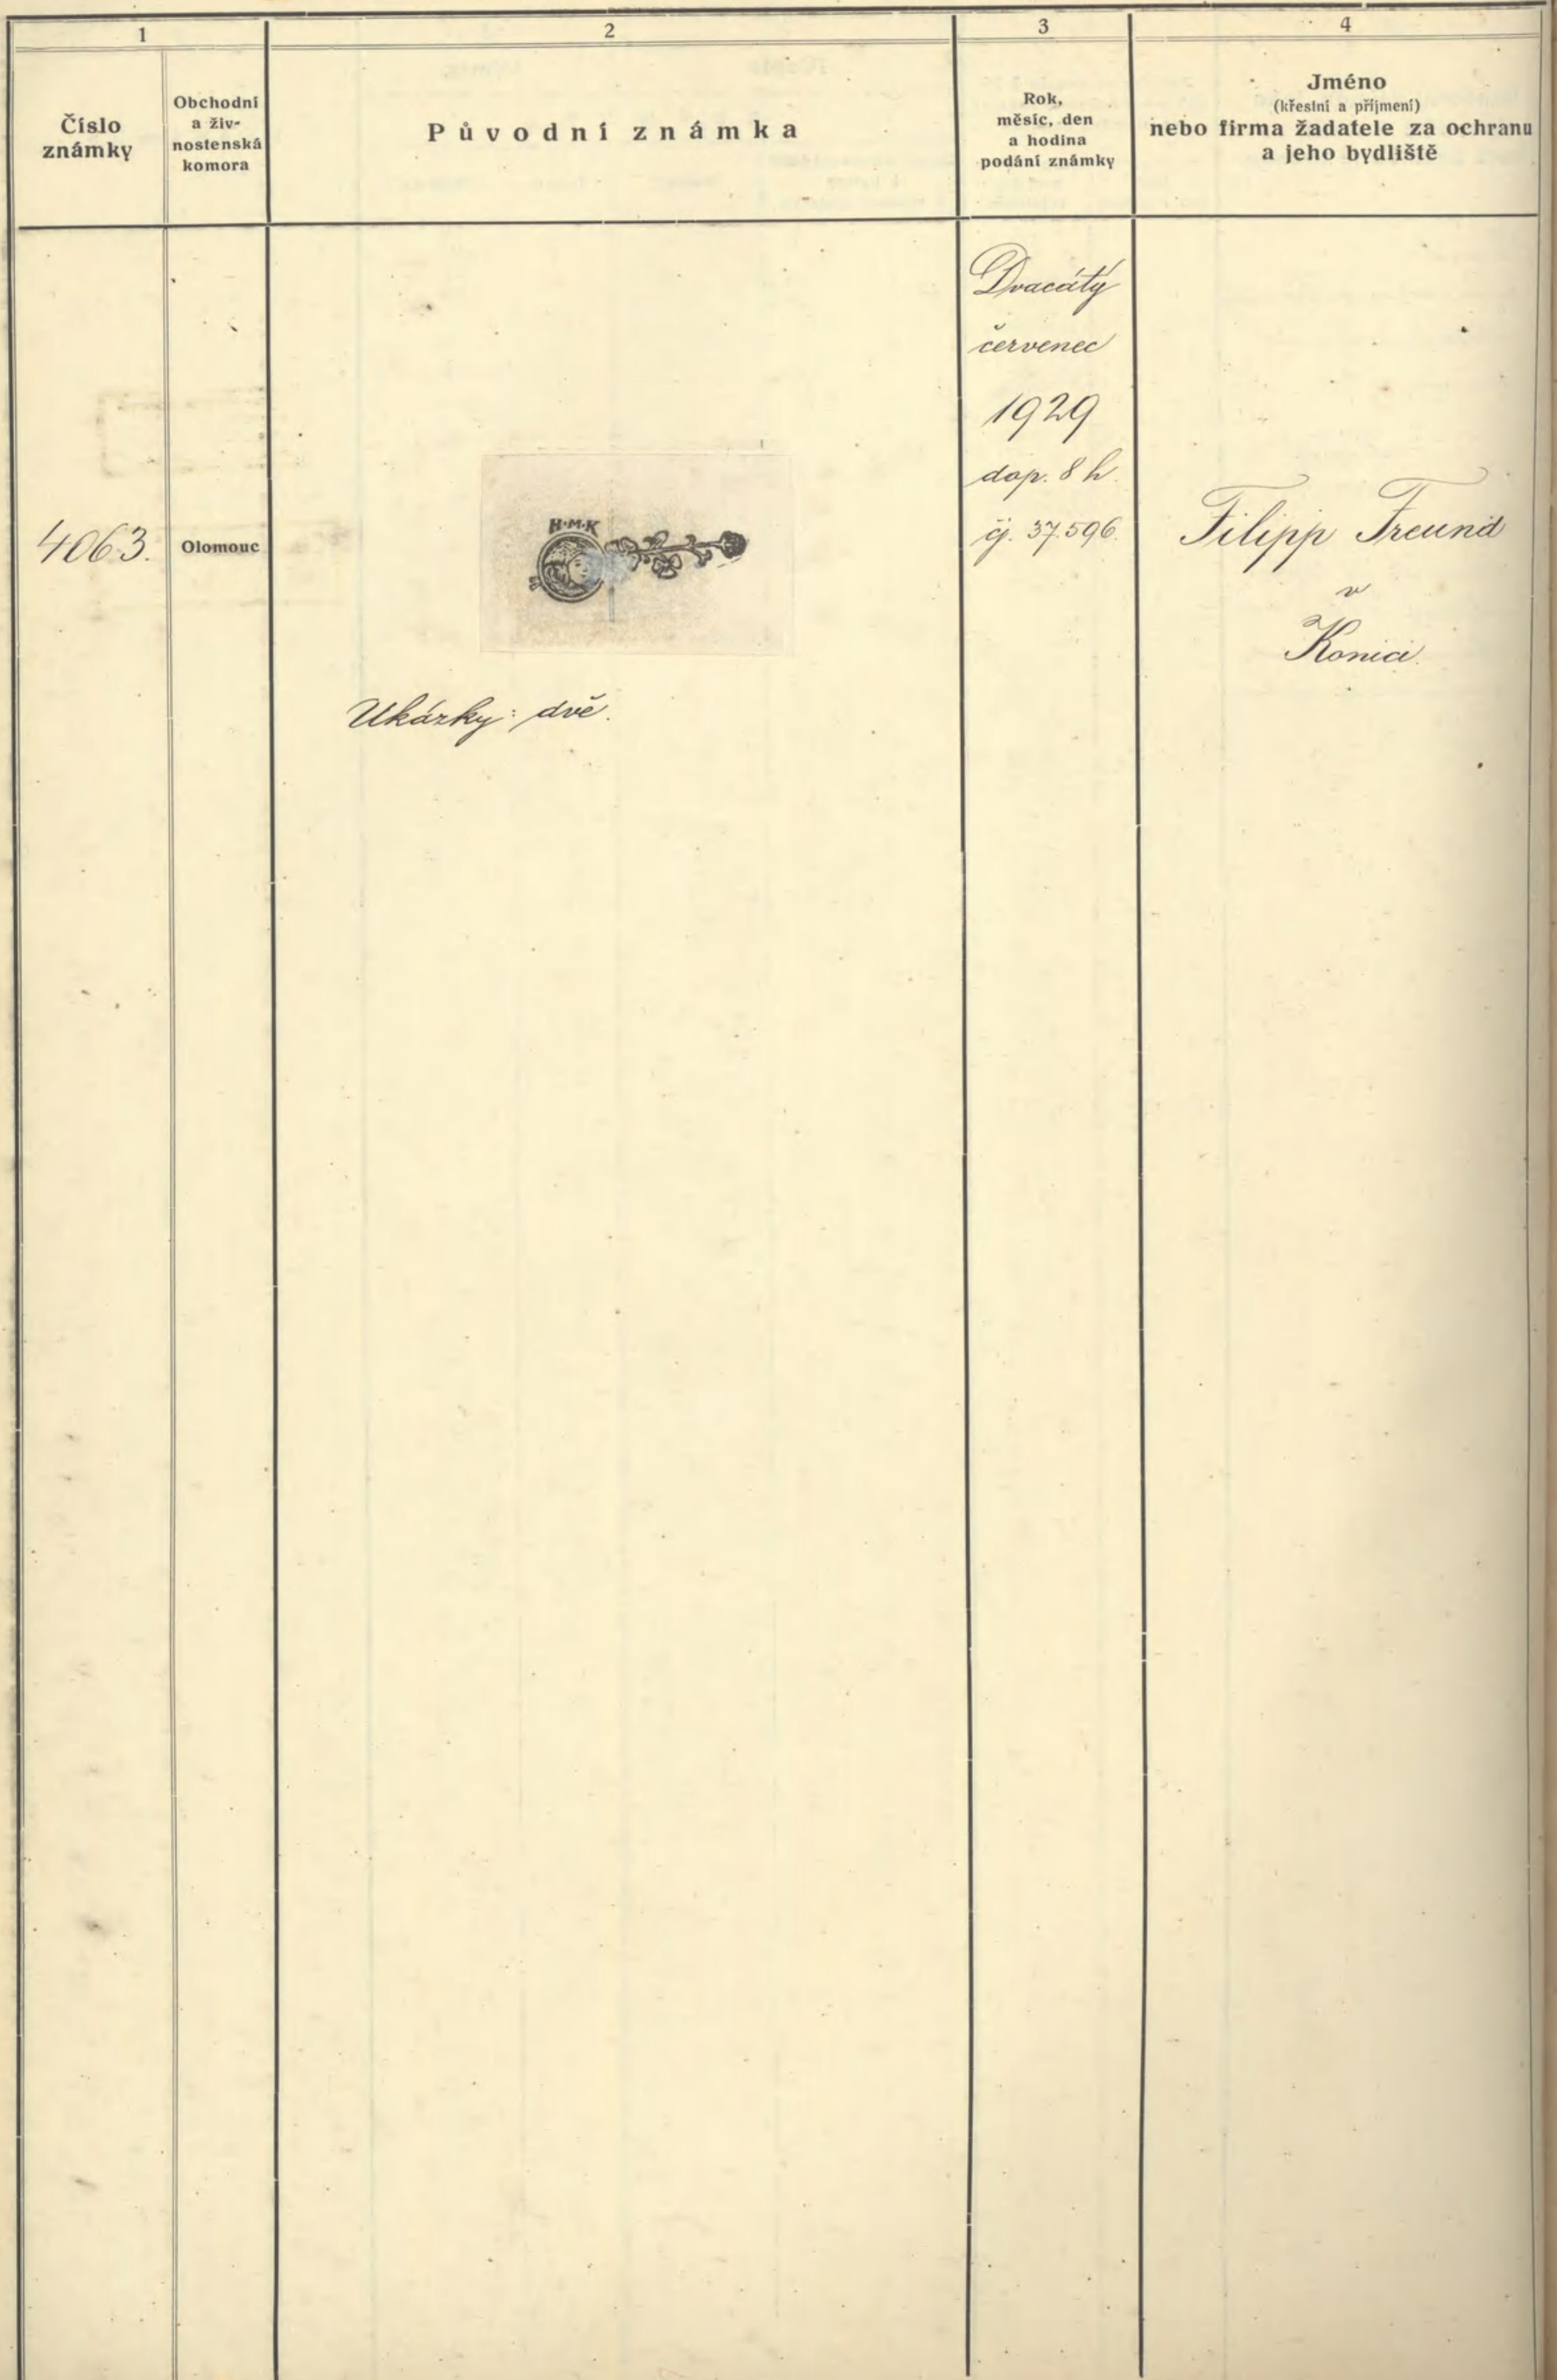 1
2
3
4
Číslo
známky
Obchodní
a živ-
nostenská
komora
Původní známka
Rok,
měsíc, den
a hodina
podání známky
Jméno
(křestní a příjmení)
nebo firma žadatele za ochranu
a jeho bydliště
4063.
Olomouc
H·M·K
Ukázky: dvě.
Dvacátý
červenec
1929
dop. 8 h.
čj. 37.596.
Filipp Freund
v
Konici.